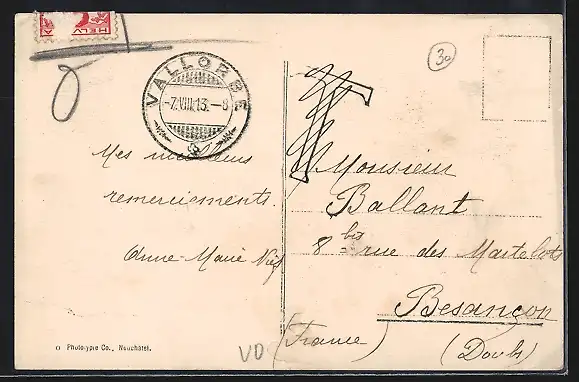 HELV
VALLORBE
-7.VIII.13.-8
30
T
Mes meilleurs
remerciements.
Anne-Marie
Monsieur
Ballant
8 bis rue des Martelots
Besançon
(France)
(Doubs)
VD
Phototypie Co., Neuchâtel.